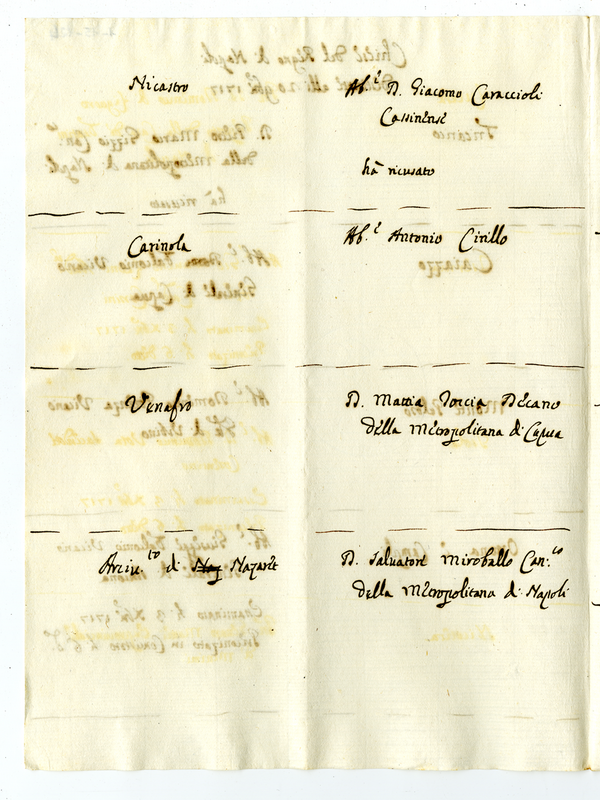 Nicastro
Ab.e D. Giacomo Caraccioli
Cassinense
hà ricusato
Carinola
Ab.e Antonio Cirillo
Venafro
D. Mattia Torcia Decano
della Metropolitana di Capua
Arciv.to di Nazaret
D. Salvatore Miroballo Can.co
della Metropolitana di Napoli